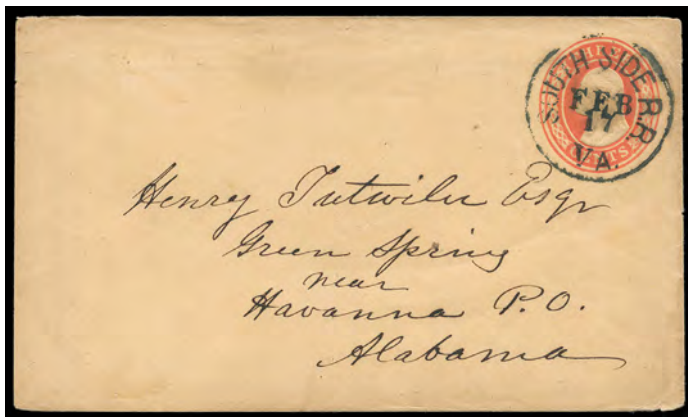 SOUTH SIDE R.R.
FEB
17
VA.
CENTS
Henry Tutwiler Esqr
Green Spring
near
Havanna P.O.
Alabama